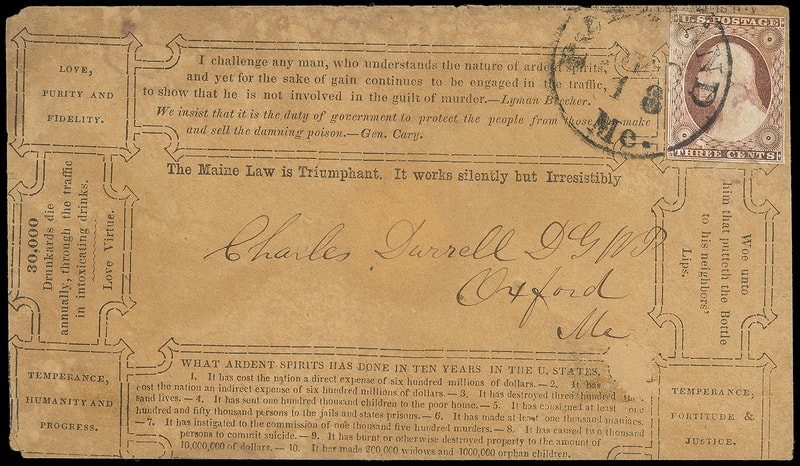 LOVE,
PURITY AND
FIDELITY.
I challenge any man, who understands the nature of ardent spirits,
and yet for the sake of gain continues to be engaged in the traffic,
to show that he is not involved in the guilt of murder.—Lyman Beecher.
We insist that it is the duty of government to protect the people from those who make
and sell the damning poison.—Gen. Cary.
The Maine Law is Triumphant. It works silently but Irresistibly
U.S. POSTAGE
THREE CENTS
18
Me.
30,000
Drunkards die
annually, through the traffic
in intoxicating drinks.
Love Virtue.
Charles Durrell D G W P
Oxford
Me
Woe unto
him that putteth the Bottle
to his neighbors'
Lips.
TEMPERANCE,
HUMANITY AND
PROGRESS.
WHAT ARDENT SPIRITS HAS DONE IN TEN YEARS IN THE U. STATES.
1. It has cost the nation a direct expense of six hundred millions of dollars. — 2. It has
cost the nation an indirect expense of six hundred millions of dollars. — 3. It has destroyed three hundred
sand lives. — 4. It has sent one hundred thousand children to the poor house. — 5. It has consigned at least one
hundred and fifty thousand persons to the jails and states prisons. — 6. It has made at least one thousand maniacs.
— 7. It has instigated to the commission of one thousand five hundred murders. — 8. It has caused two thousand
persons to commit suicide. — 9. It has burnt or otherwise destroyed property to the amount of
10,000,000 of dollars. — 10. It has made 200,000 widows and 1000,000 orphan children.
TEMPERANCE,
FORTITUDE &
JUSTICE.